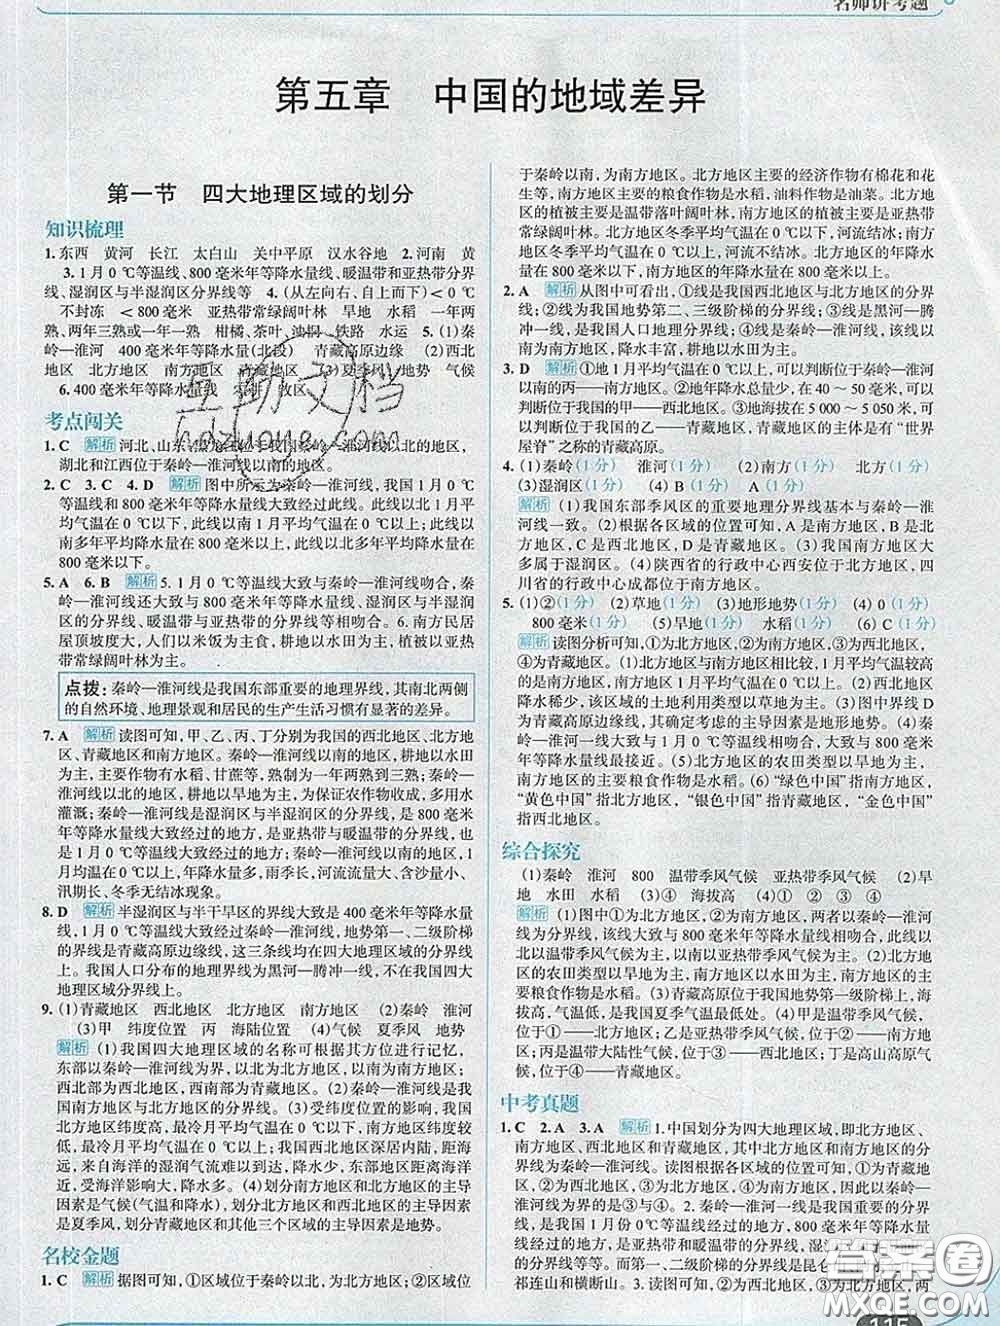 名师讲考题
第五章　中国的地域差异
第一节　四大地理区域的划分
知识梳理
1.东西　黄河　长江　太白山　关中平原　汉水谷地　2.河南　黄
河　3.1月0 ℃等温线、800毫米年等降水量线、暖温带和亚热带分界
线、湿润区与半湿润区分界线等　4.(从左向右、自上而下)<0 ℃
不封冻　<800毫米　亚热带常绿阔叶林　旱地　水田　一年两
熟、两年三熟或一年一熟　柑橘、茶叶、油桐　铁路　水运　5.(1)秦
岭—淮河　400毫米年等降水量(北段)　青藏高原边缘　(2)西北
地区　北方地区　南方地区　青藏地区　(3)夏季风　地势　气候
6.400毫米年等降水量线　农耕　牧区
考点闯关
1.C　解析　河北、山东、黑龙江位于秦岭—淮河线以北的地区,
湖北和江西位于秦岭—淮河线以南的地区。
2.C　3.C　4.D　解析　图中所示为秦岭—淮河线,我国1月0 ℃
等温线与800毫米年等降水量线大致经过此线。此线以北1月平
均气温在0 ℃以下,此线以南1月平均气温在0 ℃以上,此线以
南多年平均气温在800毫米以上,此线以北多年平均气温在800
毫米以下。
5.A　6.B　解析　5.1月0 ℃等温线大致与秦岭—淮河线吻合,秦
岭—淮河线还大致与800毫米年等降水量线、湿润区与半湿润区
的分界线、暖温带与亚热带的分界线等相吻合。6.南方民居
屋顶坡度大,人们以米饭为主食,耕地以水田为主,植被以亚热
带常绿阔叶林为主。
点拨:秦岭—淮河线是我国东部重要的地理界线,其南北两侧
的自然环境、地理景观和居民的生产生活习惯有显著的差异。
7.A　解析　读图可知,甲、乙、丙、丁分别为我国的西北地区、北方地
区、青藏地区和南方地区。秦岭—淮河线以南的地区,耕地以水田
为主,主要作物有水稻、甘蔗等,熟制为一年两熟到三熟;秦岭—
淮河线以北的地区,耕地以旱地为主,为保证农作物收成,多以水
灌溉;秦岭—淮河线是湿润区与半湿润区的分界线,是800毫米
年等降水量线大致经过的地方,是亚热带与暖温带的分界线,是
1月0 ℃等温线大致经过的地方;秦岭—淮河线以南的河流,水
量丰富,水位季节变化小,雨季长,河流流量大、含沙量小、
汛期长、冬季无结冰现象。
8.D　解析　半湿润区与半干旱区的界线大致是400毫米年等降
水量线,南北方的分界线是秦岭—淮河线,地势第一、二级阶梯
的界线是青藏高原边缘线,这三条线均在四大地理区域的分界线
上。我国人口分布的地理界线为黑河—腾冲一线,不在我国四大
地理区域分界线上。
9.(1)青藏地区　西北地区　北方地区　南方地区　(2)秦岭　淮河
(3)甲　纬度位置　丙　海陆位置　(4)气候　夏季风　地势
解析　(1)我国四大地理区域的名称可根据其方位进行记忆,
秦岭—淮河线以南为南方地区,秦岭—淮河线以北为北方地区;
西北部为西北地区,西南部为青藏地区。(2)秦岭—淮河线是我
国南方地区与北方地区的分界线。(3)受纬度位置的影响,我国
南北跨纬度较广,南方地区1月平均气温在0 ℃以上,北方地区1
月平均气温在0 ℃以下。我国西北地区深居内陆,距海远,
来自海洋的湿润气流难以到达;东部地区距离海洋近,
受海洋影响大,降水多。(4)划分北方地区和南方地区的主导因
素是气候(气温和降水),划分北方地区和西北地区的主导因素
是夏季风,划分青藏地区和其他三个区域的主导因素是地势。
名校金题
1.C　解析　据图可知,①区域位于秦岭以北,为北方地区;②区域位
于秦岭以南,为南方地区。北方地区主要的经济作物有棉花和花
生等,南方地区主要的粮食作物是水稻,油料作物是油菜。北方地
区的植被主要是温带落叶阔叶林,南方地区的植被主要是亚热带
常绿阔叶林。北方地区冬季平均气温在0 ℃以下,河流结冰;南方
地区冬季平均气温在0 ℃以上,河流不结冰。北方地区的年降水
量在800毫米以下,南方地区的年降水量在800毫米以上。
2.A　解析　从图中可看出,①线是我国西北地区与北方地区的分界
线;②线为我国地势第二、三级阶梯的分界线;③线是黑河—腾
冲一线,是我国人口地理分界线;④线为秦岭—淮河线,该线以南
地区,降水丰富,耕地以水田为主。
3.D　解析　①地1月平均气温在0 ℃以上,可以判断位于秦岭—淮河
以南的丙——南方地区。②地年降水总量少,在40～50毫米,可以
判断位于我国的甲——西北地区。③地海拔在5 000～5 050米,可
以判断位于我国的乙——青藏地区,青藏地区的主体是有“世界
屋脊”之称的青藏高原。
4.(1)秦岭(1分)　淮河(1分)　(2)南方(1分)　北方(1分)
(3)湿润区(1分)　(4)B(1分)　A(1分)
解析　(1)我国东部季风区的重要地理分界线基本与秦岭—淮
河线一致。(2)根据各区域的位置可知,A是南方地区,B是北
方地区,C是西北地区,D是青藏地区。(3)我国南方地区大
多属于湿润区。(4)陕西省的行政中心西安位于北方地区,四
川省的行政中心成都位于南方地区。
5.(1)②(1分)　(2)草地(1分)　(3)地形地势(1分)　(4)0(1分)
800毫米(1分)　(5)旱地(1分)　水稻(1分)　(6)C(1分)
解析　读图分析可知,①为北方地区,②为南方地区,③为西北地区,
④为青藏地区。(1)北方地区与南方地区相比较,1月平均气温较高
的是南方地区,1月平均气温在0 ℃以上。(2)图中③西北地区
降水稀少,该区域的土地利用类型以草地为主。(3)图中界线D
为青藏高原边缘线,其确定考虑的主导因素是地形地势。(4)秦
岭—淮河一线与我国1月0 ℃等温线大致吻合,大致与800毫米
年等降水量线最接近。(5)北方地区的农田类型以旱地为主,
南方地区的主要粮食作物是水稻。(6)“绿色中国”指南方地区,
“黄色中国”指北方地区,“银色中国”指青藏地区,“金色中国”
指西北地区。
综合探究
(1)秦岭　淮河　800　温带季风气候　亚热带季风气候　(2)旱
地　水田　水稻　(3)④　海拔高　(4)②　①　③　④
解析　(1)图中①为北方地区,②为南方地区,两者以秦岭—淮河
线为分界线,该线大致与800毫米年等降水量线相吻合。此线以
北为温带季风气候,以南为亚热带季风气候。(2)图中①北方地
区的农田类型以旱地为主,②南方地区的农田类型以水田为主,
主要粮食作物是水稻。(3)青藏高原位于我国地势第一级阶梯上,海
拔高,气温低,是我国夏季气温最低处。(4)甲是温带季风气候,
位于①——北方地区;乙是亚热带季风气候,位于②——南方地
区;丙是温带大陆性气候,位于③——西北地区;丁是高山高原气
候,位于④——青藏地区。
中考真题
1.C　2.A　3.A　解析　1.中国划分为四大地理区域,即北方地区、
南方地区、西北地区和青藏地区,其中北方地区和南方地区的分
界线为秦岭—淮河线。读图根据各区域的位置可知,图中表示秦
岭—淮河线的界线为③与④。2.秦岭—淮河一线是
我国1月份0 ℃等温线、800毫米年等降水量线大致经过的
地方,是我国暖温带与亚热带的分界线、湿润区与半湿润区的分
界线等。而第一、二级阶梯的分界线是昆仑山
祁连山和横断山。3.读图可知,①为西北地区,②为北方地区,两
直渐文档
hdzuoye.com
答案圈
MXQE.COM
115